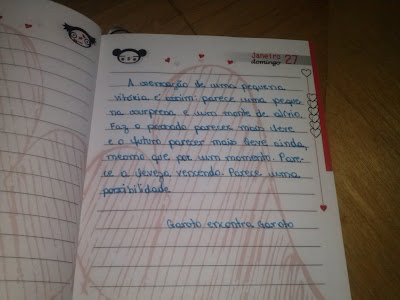 Janeiro 27
domingo
A sensação de uma pequena
vitória é assim: parece uma peque
na surpresa e um monte de alívio.
Faz o passado parecer mais leve
e o futuro parecer mais leve ainda,
mesmo que por um momento. Pare-
ce a leveza vencendo. Parece uma
possibilidade
Garoto encontra Garoto